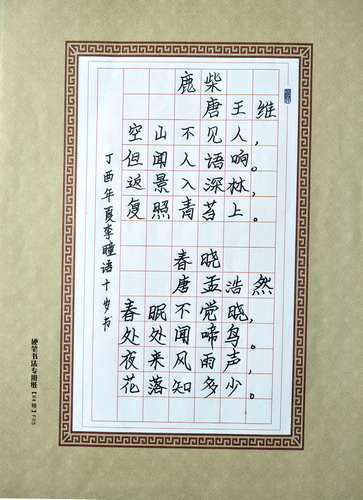 鹿柴
唐 王维
空山不见人，
但闻人语响。
返景入深林，
复照青苔上。
春晓
唐 孟浩然
春眠不觉晓，
处处闻啼鸟。
夜来风雨声，
花落知多少。
丁酉年夏李瞳语十岁书
硬笔书法专用纸【84格】F05